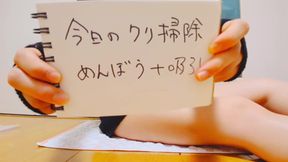 今日のクリ掃除
めんぼう+吸引